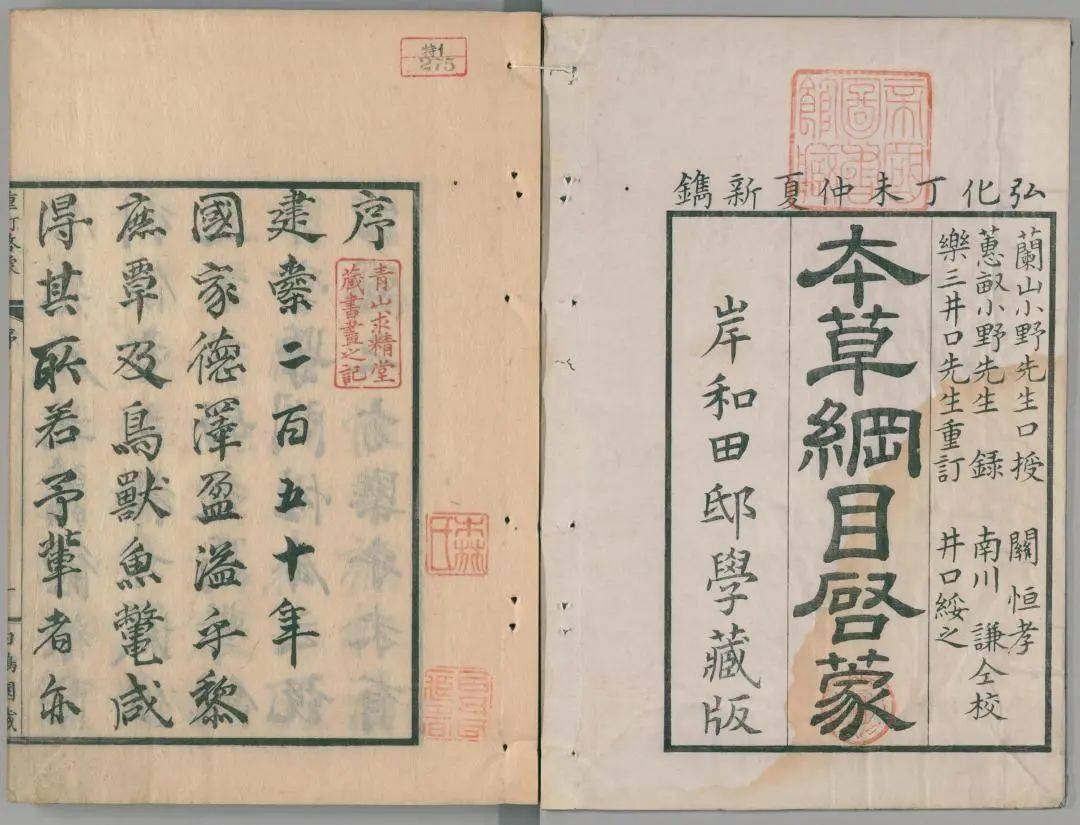 帝國
圖書
館藏
弘化丁未仲夏新鐫
蘭山小野先生口授 關 恒孝
蕙畝小野先生 錄 南川 謙仝校
樂三井口先生重訂 井口綏之
本草綱目啓蒙
岸和田邸學藏版
特1
275
序
青山求精堂
藏書畫之記
森氏
建櫜二百五十年
國家德澤盈溢乎黎
庶覃及鳥獸魚鼈咸
得其所若予輩者亦